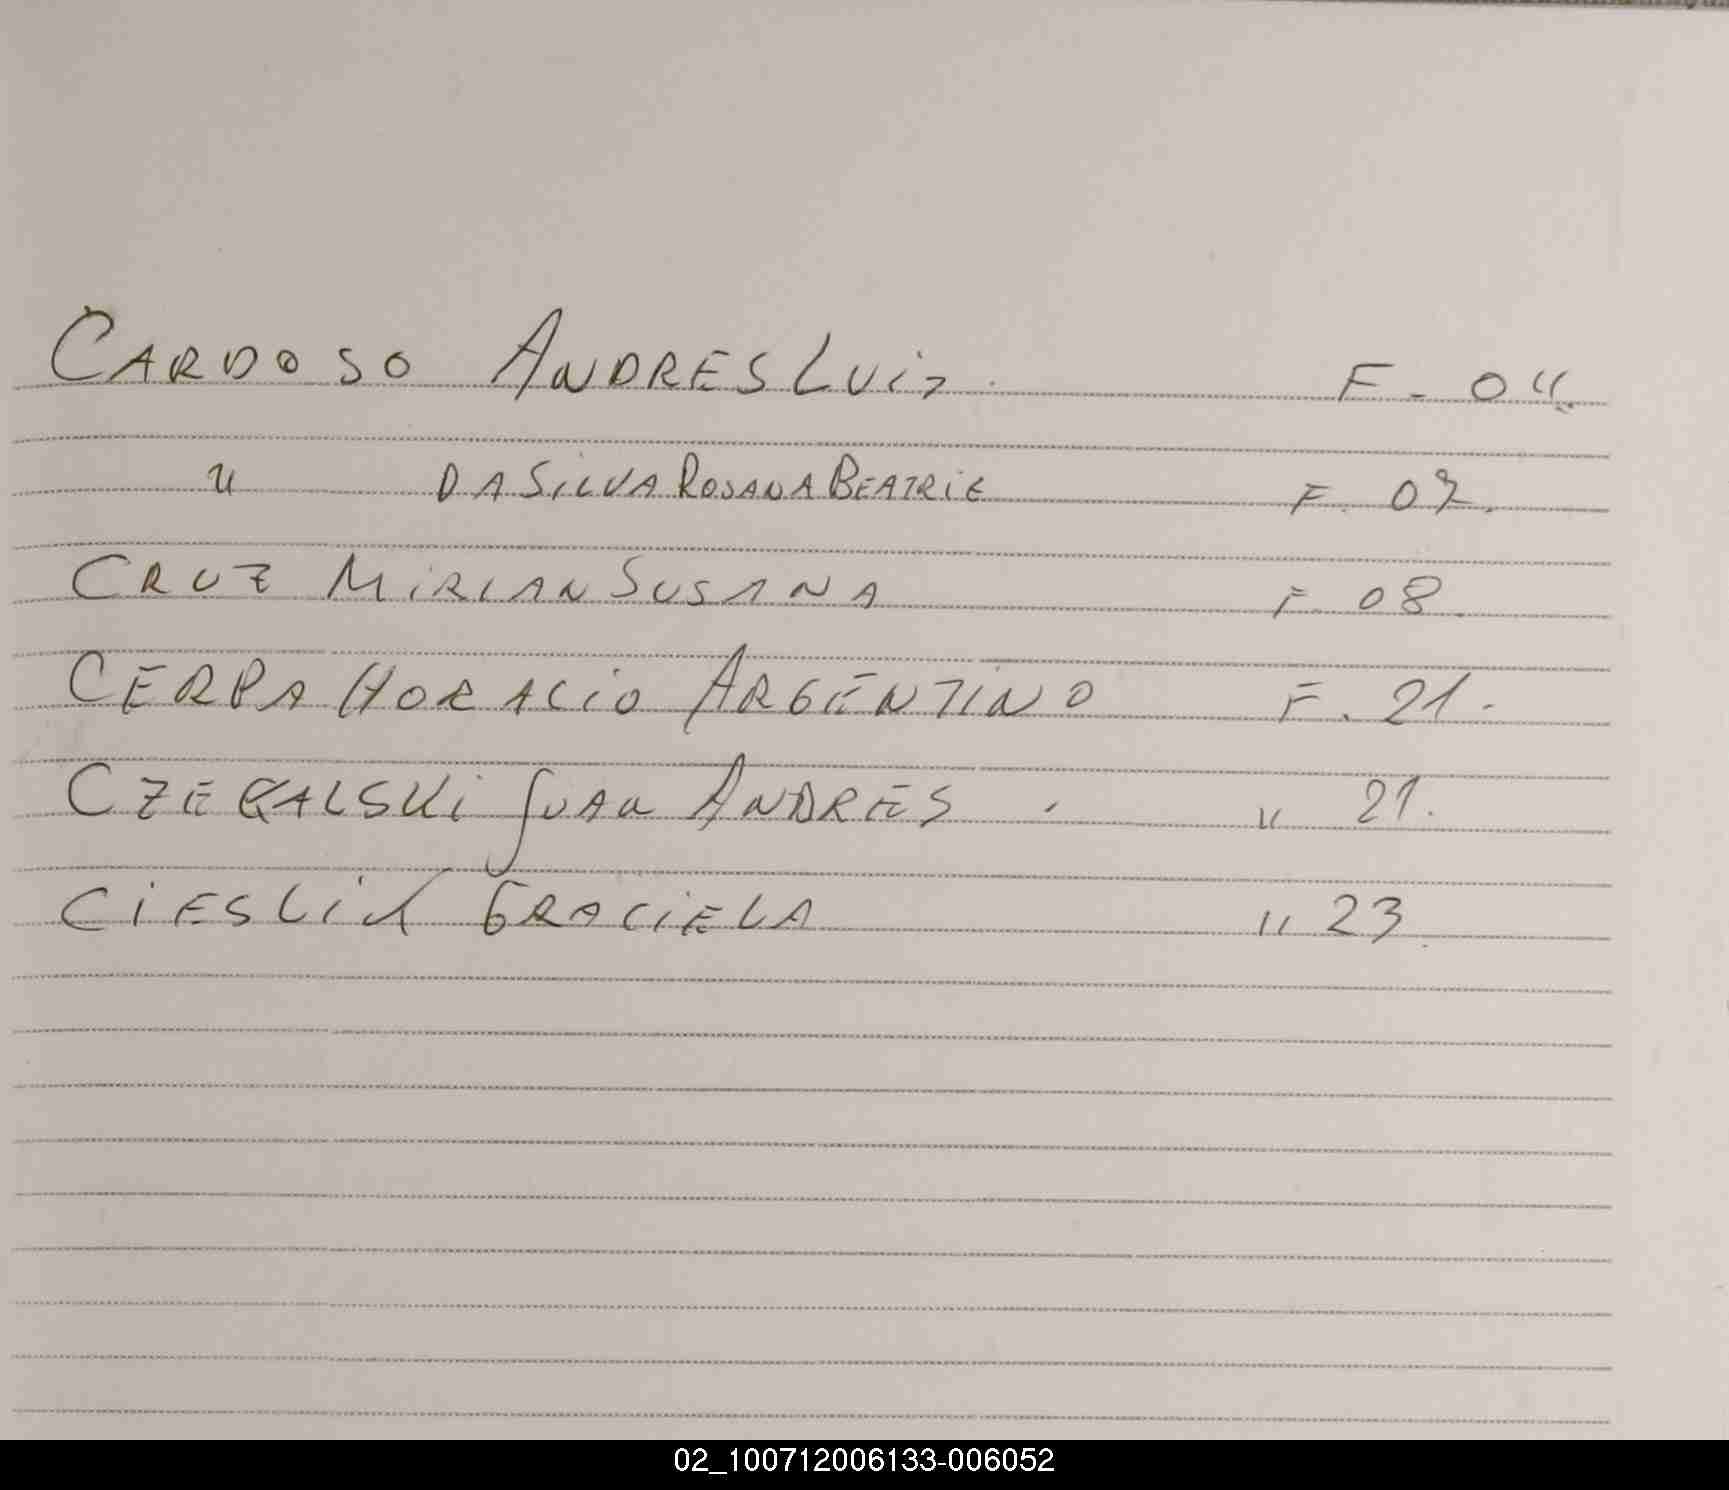 CARDOSO ANDRES LUIS. F. 04.
" DA SILVA ROSANA BEATRIE F. 07.
CRUZ MIRIAN SUSANA F. 08.
CERPA HORACIO ARGENTINO F. 21.
JUAN ANDRES . " 21.
CIESLIK GRACIELA " 23.
02_100712006133-006052